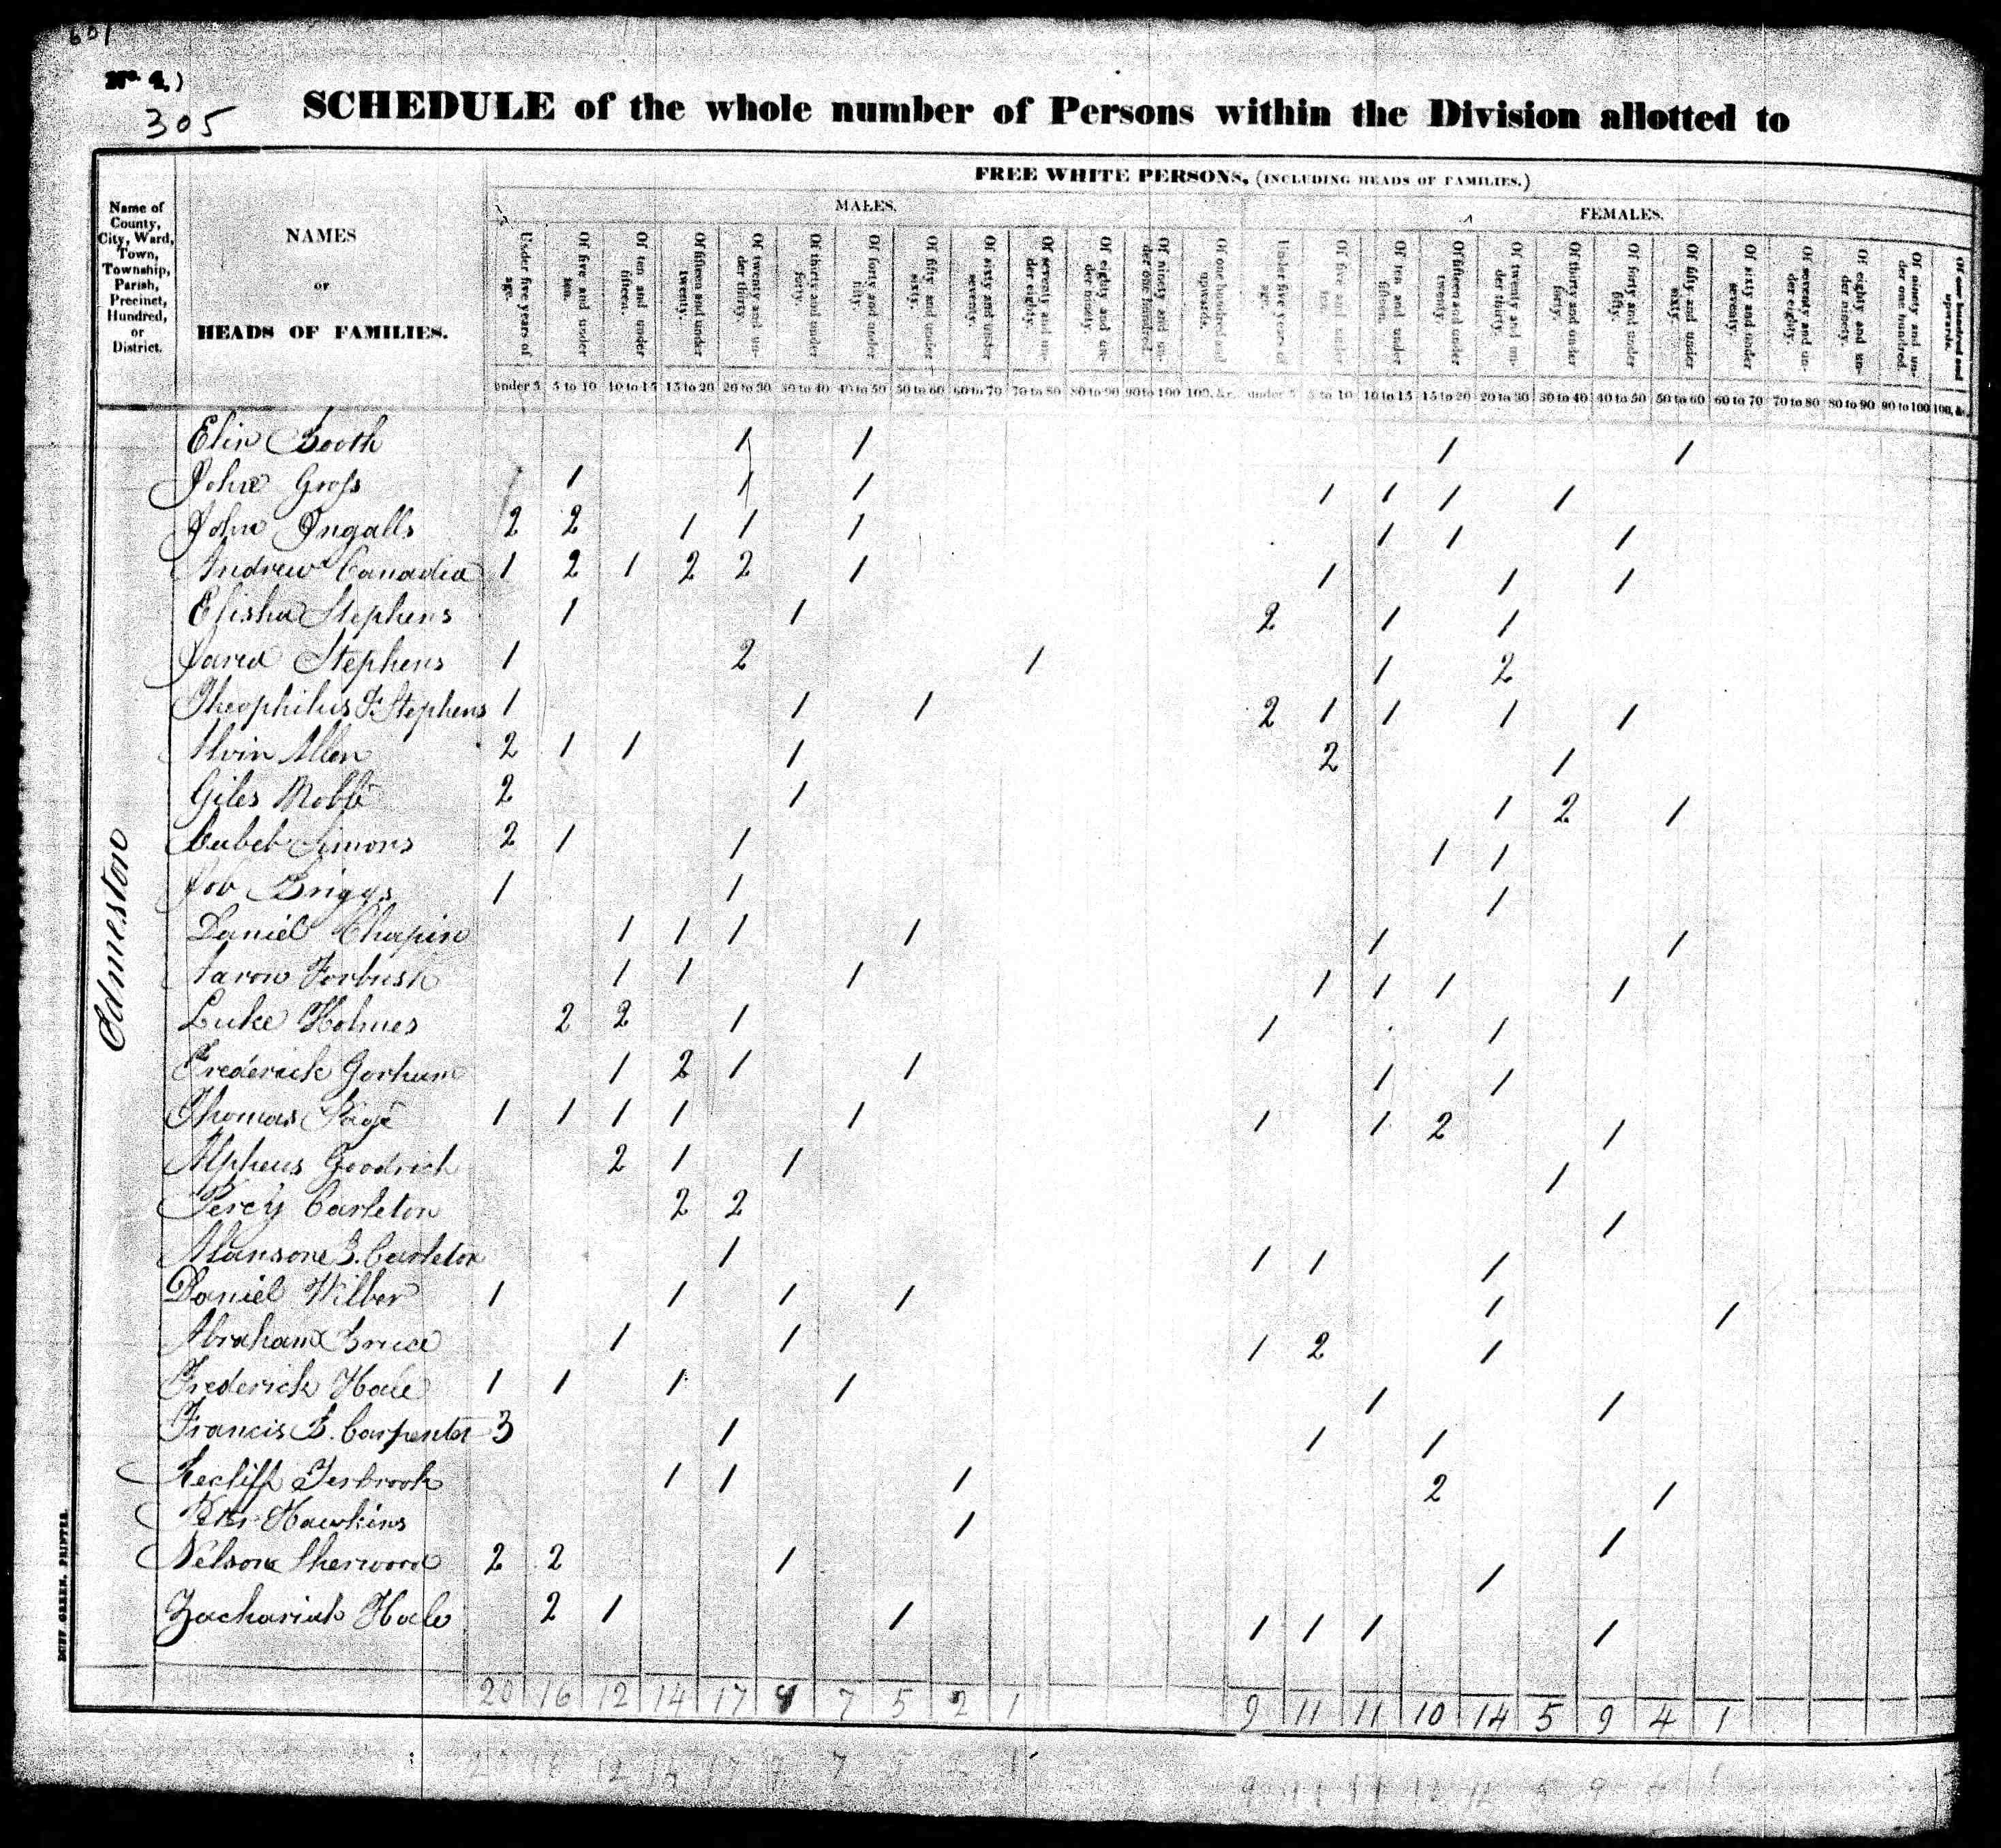 601
No. 4.)
305
SCHEDULE of the whole number of Persons within the Division allotted to
FREE WHITE PERSONS, (INCLUDING HEADS OF FAMILIES.)
MALES. FEMALES.
Name of County, City, Ward, Town, Township, Parish, Precinct, Hundred, or District.
NAMES
or
HEADS OF FAMILIES.
Under five years of age.
Of five and under ten.
Of ten and under fifteen.
Of fifteen and under twenty.
Of twenty and under thirty.
Of thirty and under forty.
Of forty and under fifty.
Of fifty and under sixty.
Of sixty and under seventy.
Of seventy and under eighty.
Of eighty and under ninety.
Of ninety and under one hundred.
Of one hundred and upwards.
Under five years of age.
Of five and under ten.
Of ten and under fifteen.
Of fifteen and under twenty.
Of twenty and under thirty.
Of thirty and under forty.
Of forty and under fifty.
Of fifty and under sixty.
Of sixty and under seventy.
Of seventy and under eighty.
Of eighty and under ninety.
Of ninety and under one hundred.
Of one hundred and upwards.
under 5 5 to 10 10 to 15 15 to 20 20 to 30 30 to 40 40 to 50 50 to 60 60 to 70 70 to 80 80 to 90 90 to 100 100, &c. under 5 5 to 10 10 to 15 15 to 20 20 to 30 30 to 40 40 to 50 50 to 60 60 to 70 70 to 80 80 to 90 90 to 100 100, &c.
Edmeston
Booth 1 1 1 1
John Gross 1 1 1 1 1 1 1 1
John Ingalls 2 2 1 1 1 1 1 1
Andrew Canada 1 2 1 2 2 1 1 1 1
Elisha Stephens 1 1 2 1 1
Jared Stephens 1 2 1 1 2
Theophilus F. Stephens 1 1 1 2 1 1 1 1
Alvin Allen 2 1 1 1 2 1
Giles Noble 2 1 1 2 1
Simons 2 1 1 1 1
Job Briggs 1 1 1
Daniel Chapin 1 1 1 1 1 1
Aaron Forbush 1 1 1 1 1 1 1
Luke Holmes 2 2 1 1 1
Frederick Gorham 1 2 1 1 1 1
Thomas Page 1 1 1 1 1 1 1 2 1
Alpheus Goodrich 2 1 1 1
Percy Carleton 2 2 1
Alanson B. Carleton 1 1 1 1
Daniel Wilber 1 1 1 1 1 1
Abraham Bruce 1 1 1 2 1
Frederick Hale 1 1 1 1 1 1
Francis B. Carpenter 3 1 1 1
1 1 1 2 1
Peter Hawkins 1 1
Nelson Sherwood 2 2 1 1
Zachariah Hale 2 1 1 1 1 1 1
20 16 12 14 17 9 7 5 2 1 9 11 11 10 14 5 9 4 1
DUFF GREEN, PRINTER.